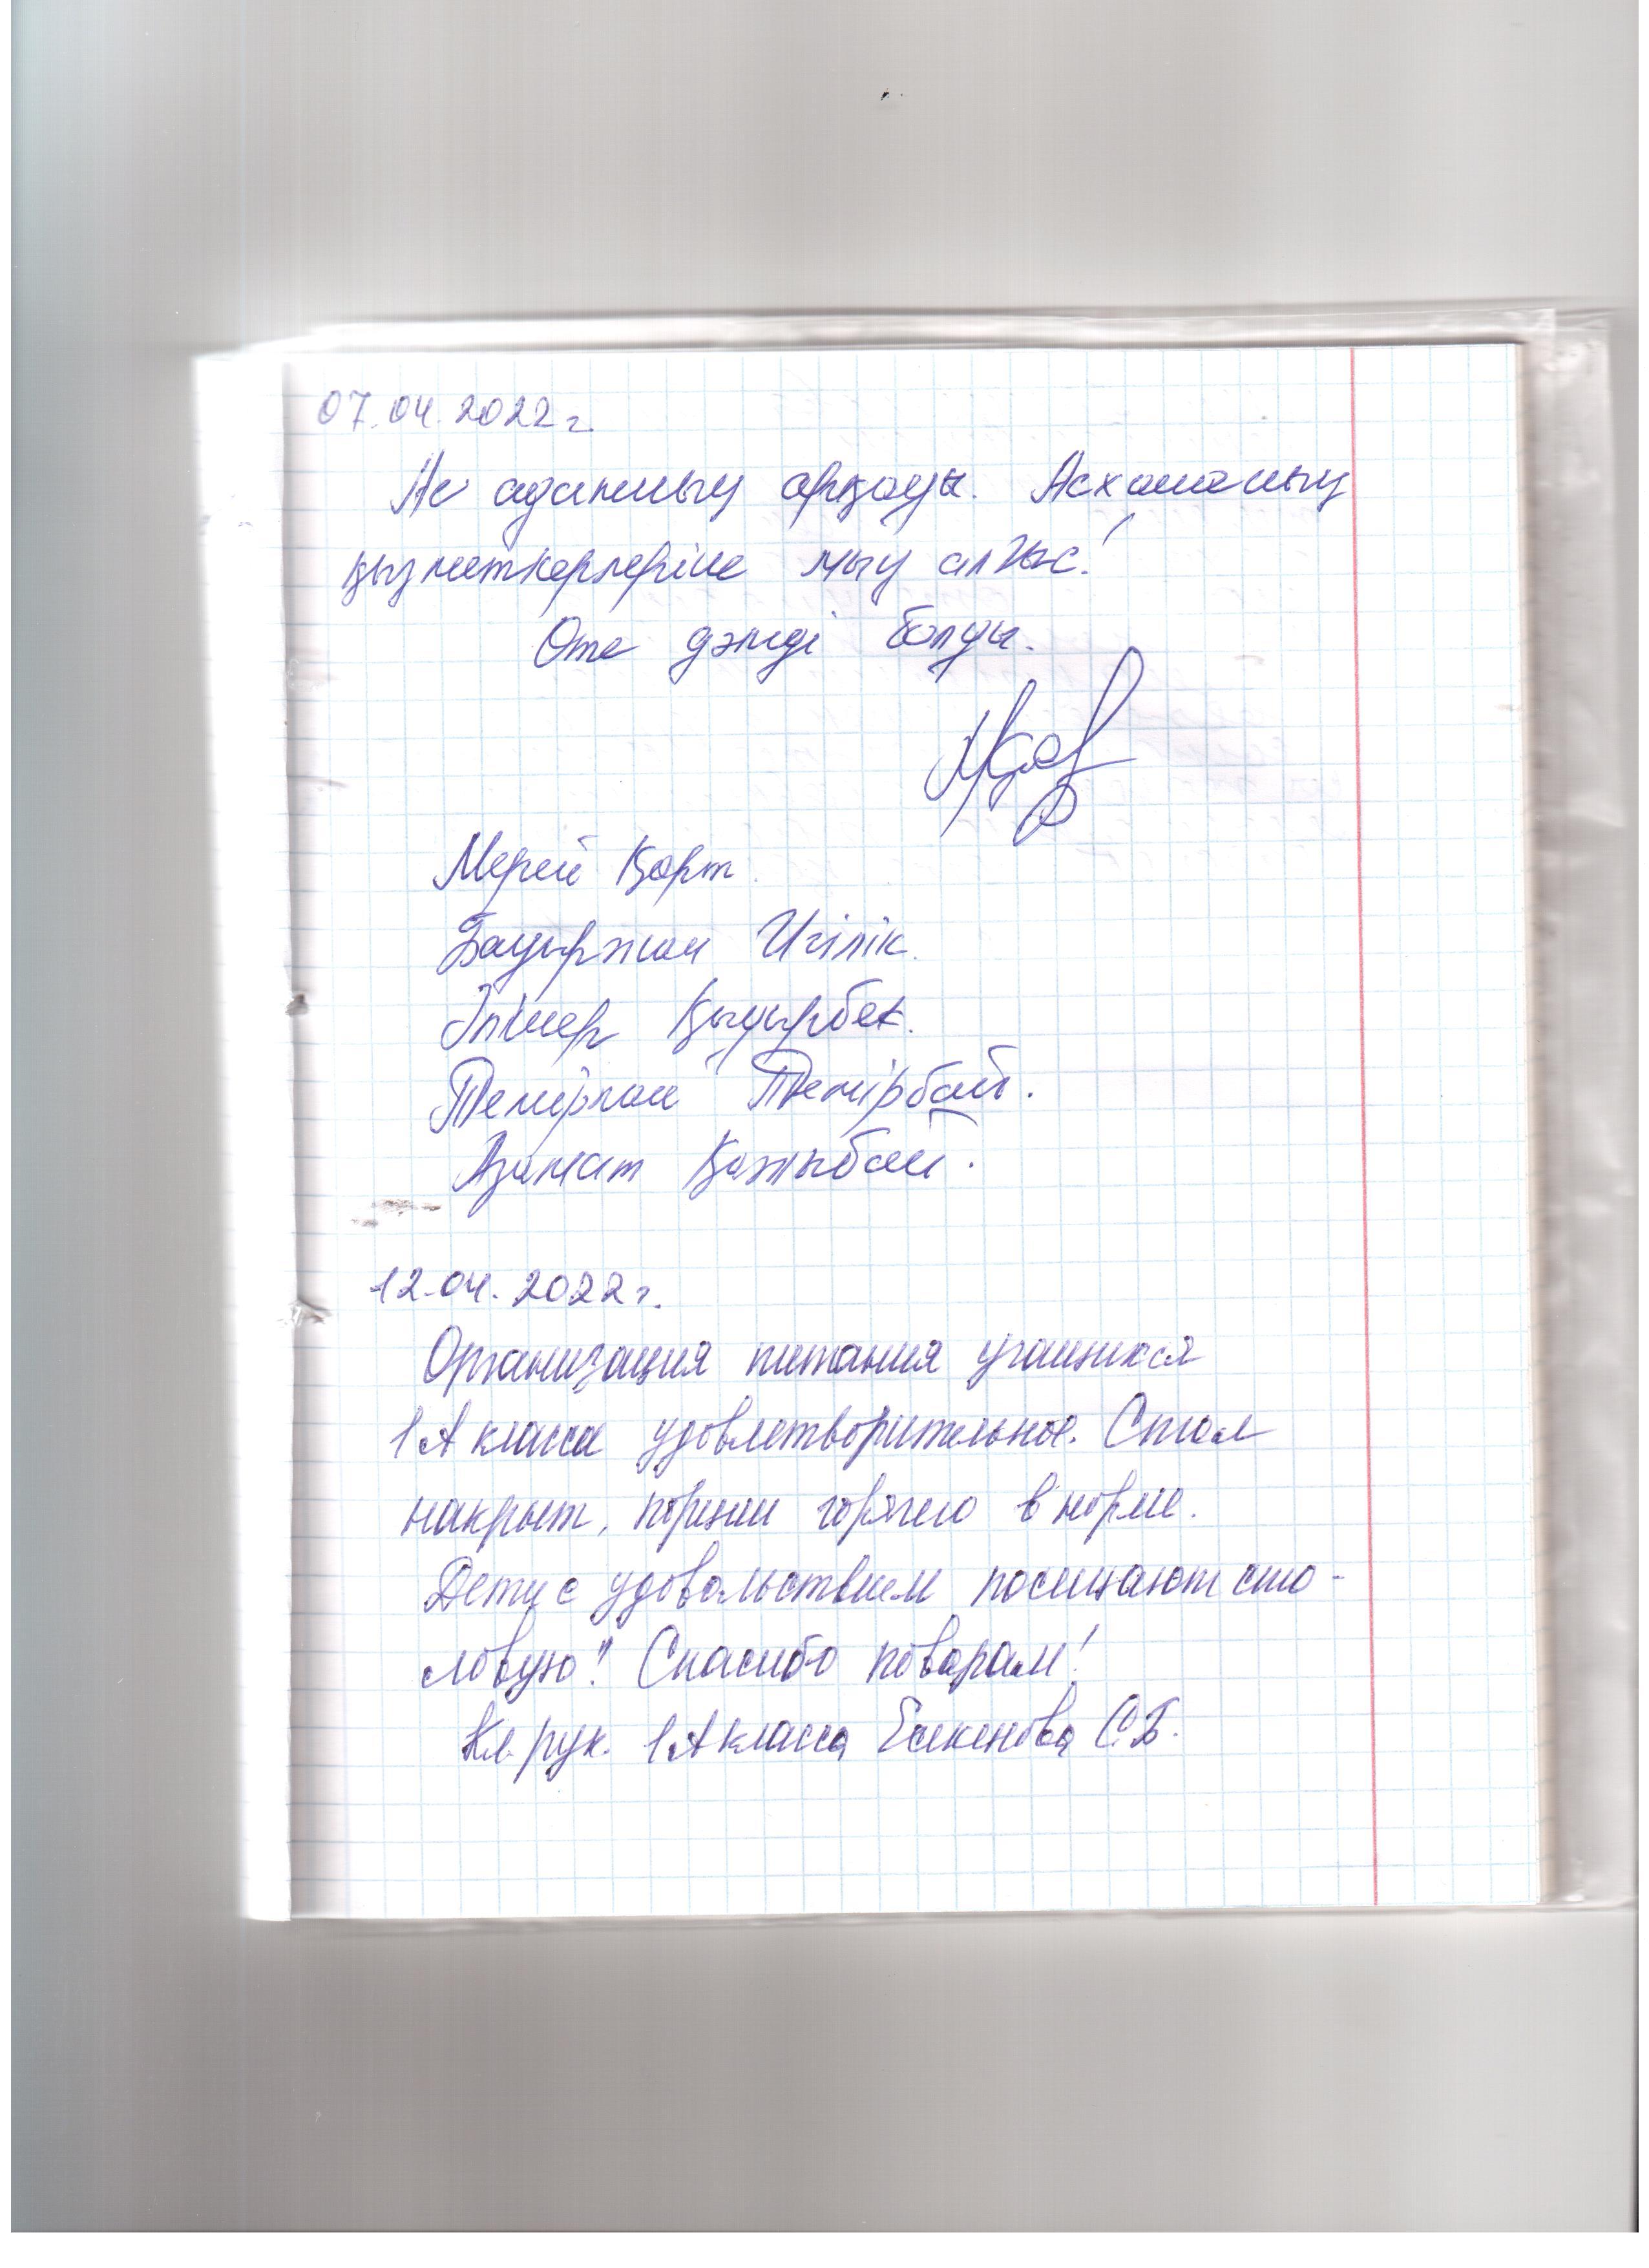 07.04.2022г.
Ас адамның арқауы. Асхананың
қызметкерлеріне мың алғыс!
Өте дәмді болды.
Мерей Қорт.
Бауыржан Игілік.
Ілияр Қыдырбек.
Темірлан Темірбай.
Азамат Қажыбай.
12.04.2022г.
Организация питания учащихся
1А класса удовлетворительное. Стол
накрыт, порции горячего в норме.
Дети с удовольствием посещают сто-
ловую! Спасибо поварам!
Кл. рук. 1А класса Ескенова С.Б.